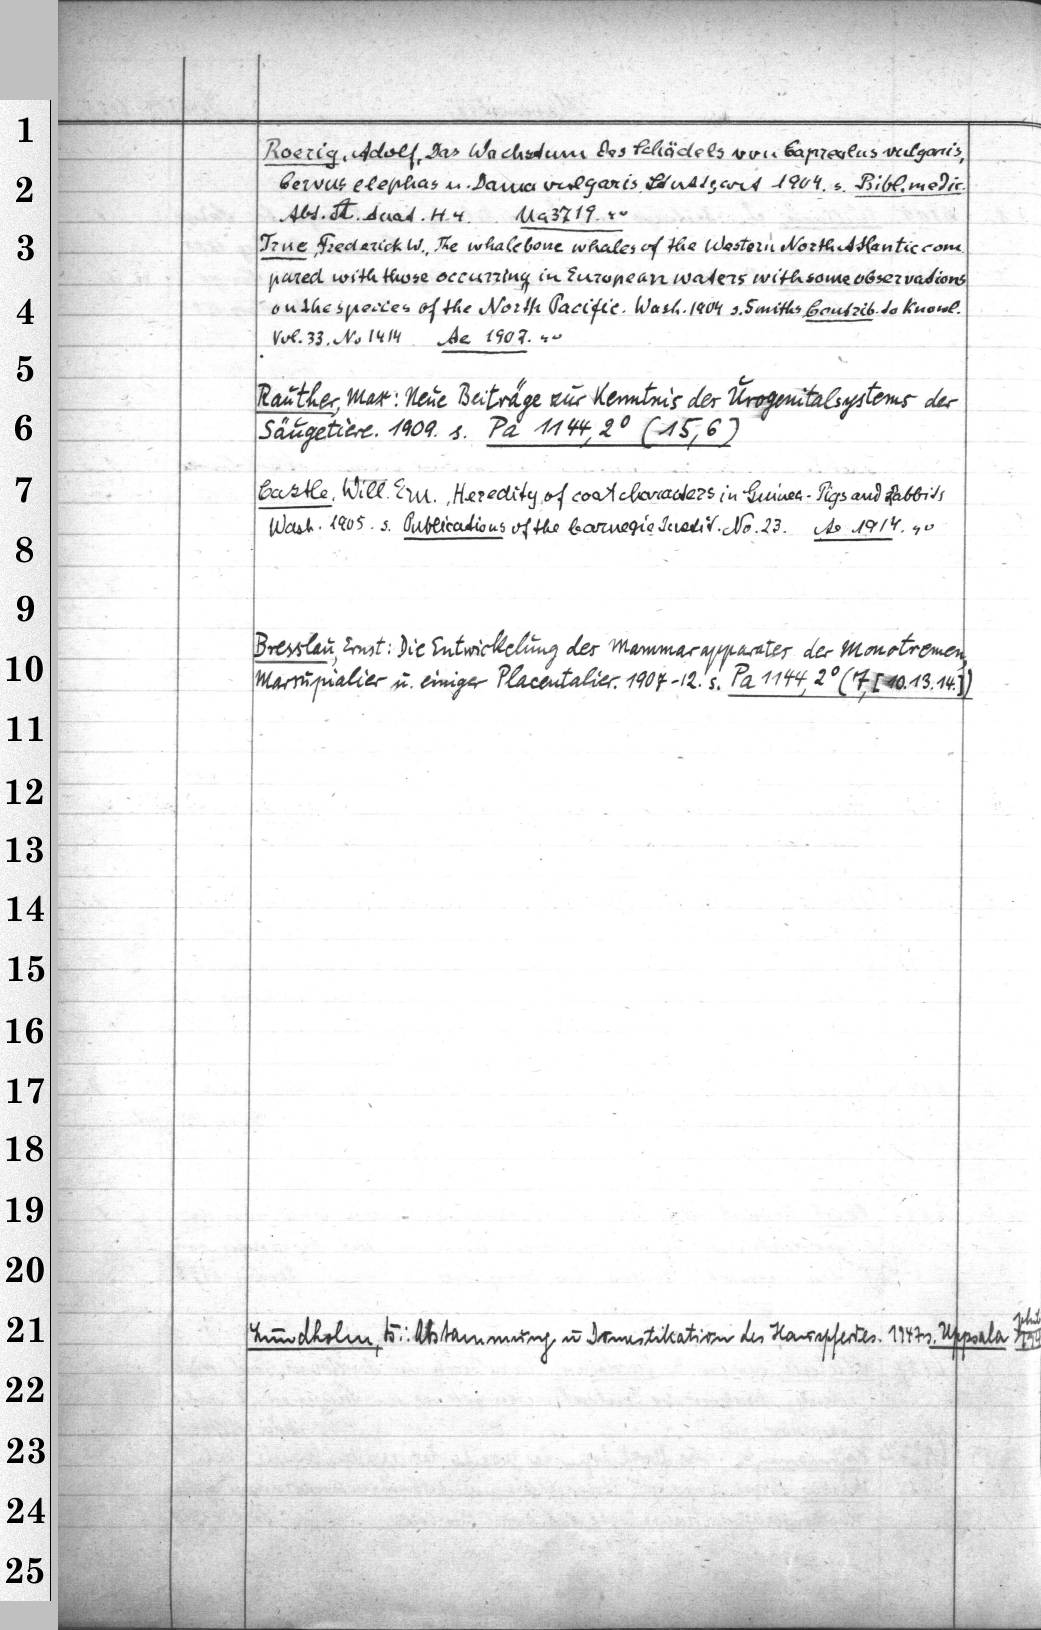 1
Roerig, Adolf, Das Wachstum des Schädels von Capreolus vulgaris,
2
Cervus elephas u. Dama vulgaris Stuttgart 1904. s. Bibl. medic.
Abt. A. Anat. H. 4. Ua3719. 4°
3
True, Frederick W., The whalebone whales of the Western North Atlantic com
pared with those occurring in European waters with some observations
4
on the species of the North Pacific. Wash. 1904 s. Smiths. Contrib. to Knowl.
Vol. 33. No 1414 Ae 1907. 4°
5
Rauther, Max: Neue Beiträge zur Kenntnis des Urogenitalsystems der
6
Säugetiere. 1909. s. Pa 1144, 2° (15,6)
7
Castle, Will. Ern., Heredity of coat characters in Guinea-Pigs and Rabbits
Wash. 1905. s. Publications of the Carnegie Instit. No. 23. Ae 1914. 4°
8
9
Bresslau, Ernst: Die Entwickelung des Mammarapparates der Monotremen,
10
Marsupialier u. einiger Placentalier. 1907-12. s. Pa 1144, 2° (7, [10.13.14.])
11
12
13
14
15
16
17
18
19
20
21
Lundholm, B.: Abstammung u Domestikation des Hauspferdes. 1947 s. Uppsala
22
23
24
25